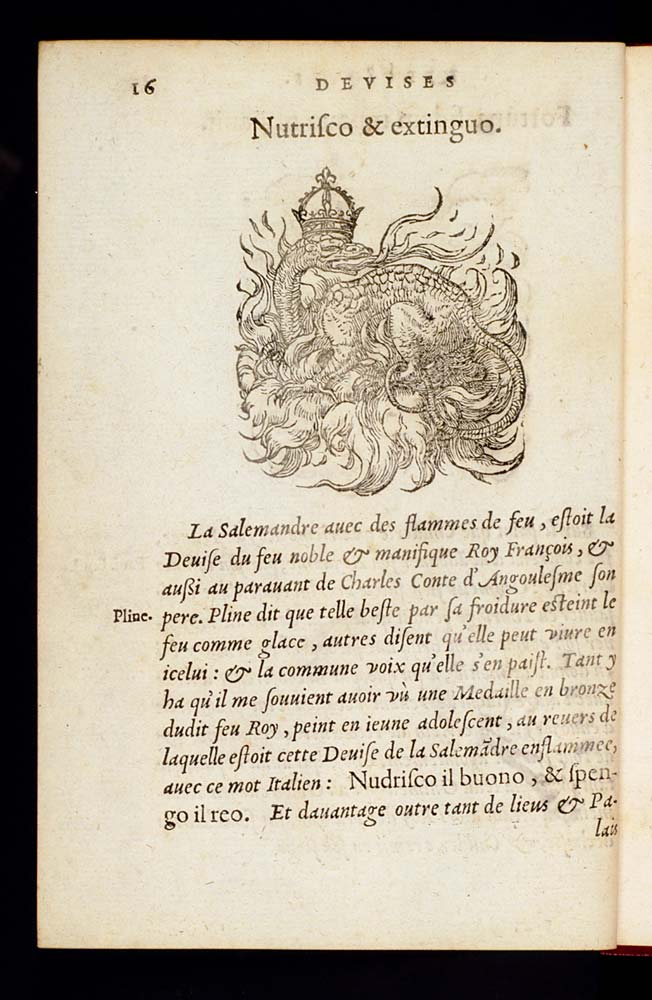 16
DEVISES
Nutriſco & extinguo.
La Salemandre auec des flammes de feu, eſtoit la
Deuiſe du feu noble & manifique Roy François, &
auſsi au parauant de Charles Conte d'Angouleſme ſon
Pline. pere. Pline dit que telle beſte par ſa froidure esteint le
feu comme glace, autres diſent qu'elle peut viure en
icelui : & la commune voix qu'elle s'en paiſt. Tant y
ha qu'il me ſouuient auoir vù une Medaille en bronze
dudit feu Roy, peint en ieune adoleſcent, au reuers de
laquelle eſtoit cette Deuiſe de la Salemãdre enflammee,
auec ce mot Italien : Nudriſco il buono, & ſpen-
go il reo. Et dauantage outre tant de lieus & Pa-
lais